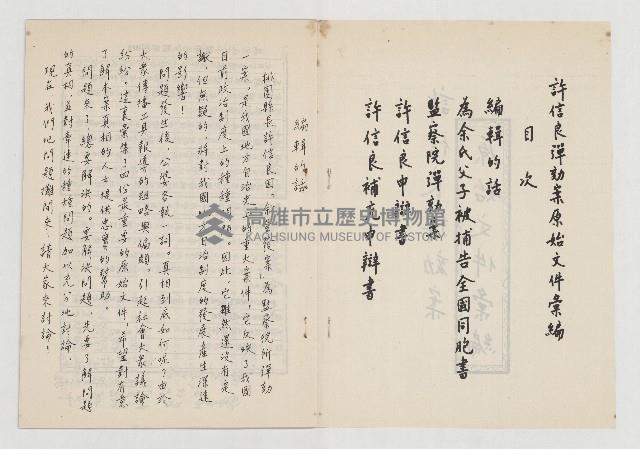 許信良彈劾案原始文件彙編
目次
編輯的話
為余氏父子被捕告全國同胞書
監察院彈劾案
許信良申辯書
許信良補充申辯書
編輯的話
桃園縣長許信良因「余登發案」為監察院所彈劾
一案，是我國地方自治史上的重大案件，它反映了我國
目前政治制度上的種種問題。因此，它雖然還沒有定
讞，但無疑的將對我國
自治制度的發展產生深遠
的影響！
問題發生後，公婆各執一詞。真相到底如何呢？由於
大眾傳播工具報導的粗略與偏頗，引起社會大眾議論
紛紛，達
彙集了四份最重要的原始文件，希望對有意
了解本案真相的人士提供忠實的幫助。
問題來了，總要解決的。要解決問題，先要了解問題
的真相並對牽連的種種問題加以充分地討論。
現在，我們把問題攤開來，請大家來討論！
高雄市立歷史博物館
KAOHSIUNG MUSEUM OF HISTORY